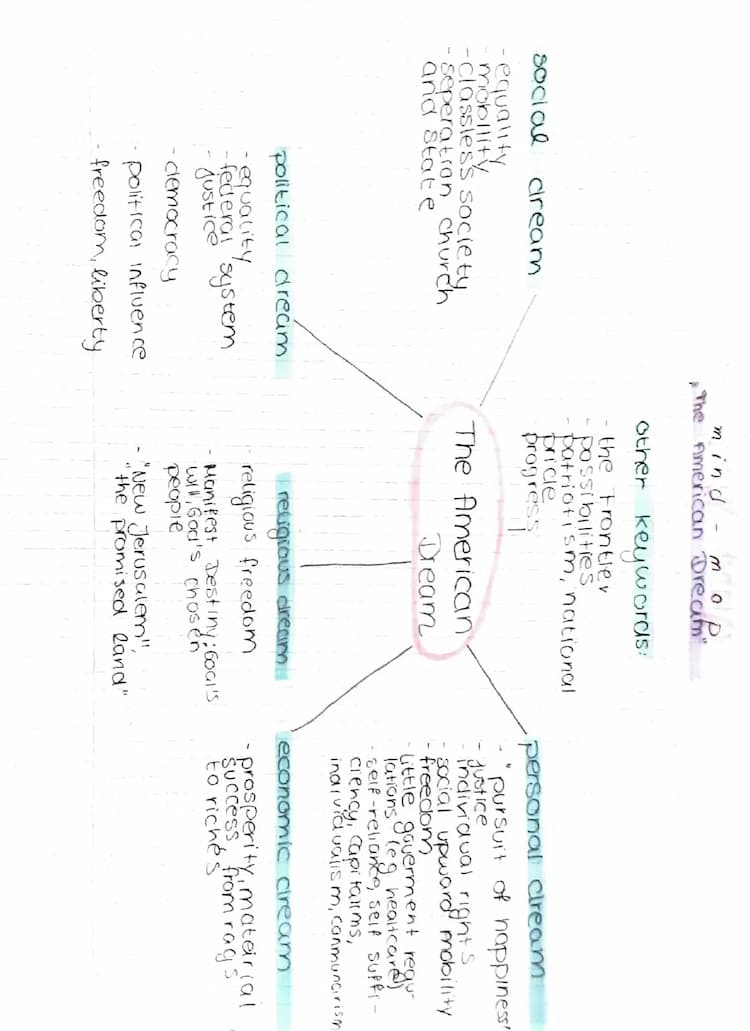 mind-map
„The American Dream"
other keywords:
- the frontier
- possibilities
- patriotism, national
pride
- progress
social dream
- equality
- mobility
- classless society
- seperation church
and state
The American
Dream
personal dream
- "pursuit of happiness"
- justice
- individual rights
- social upward mobility
- freedom
- little goverment regu-
lations (eg healtcare)
- self-reliance, self suffi-
ciency, capitalims,
individualism, communarism
political dream
- equality
- federal system
- justice
- democracy
- political influence
- freedom, liberty
religious dream
- religious freedom
- Manifest Destiny: God's
will, God's chosen
people
- "New Jerusalem",
"the promised land"
economic dream
- prosperity, mateirial
success from rags
to riches